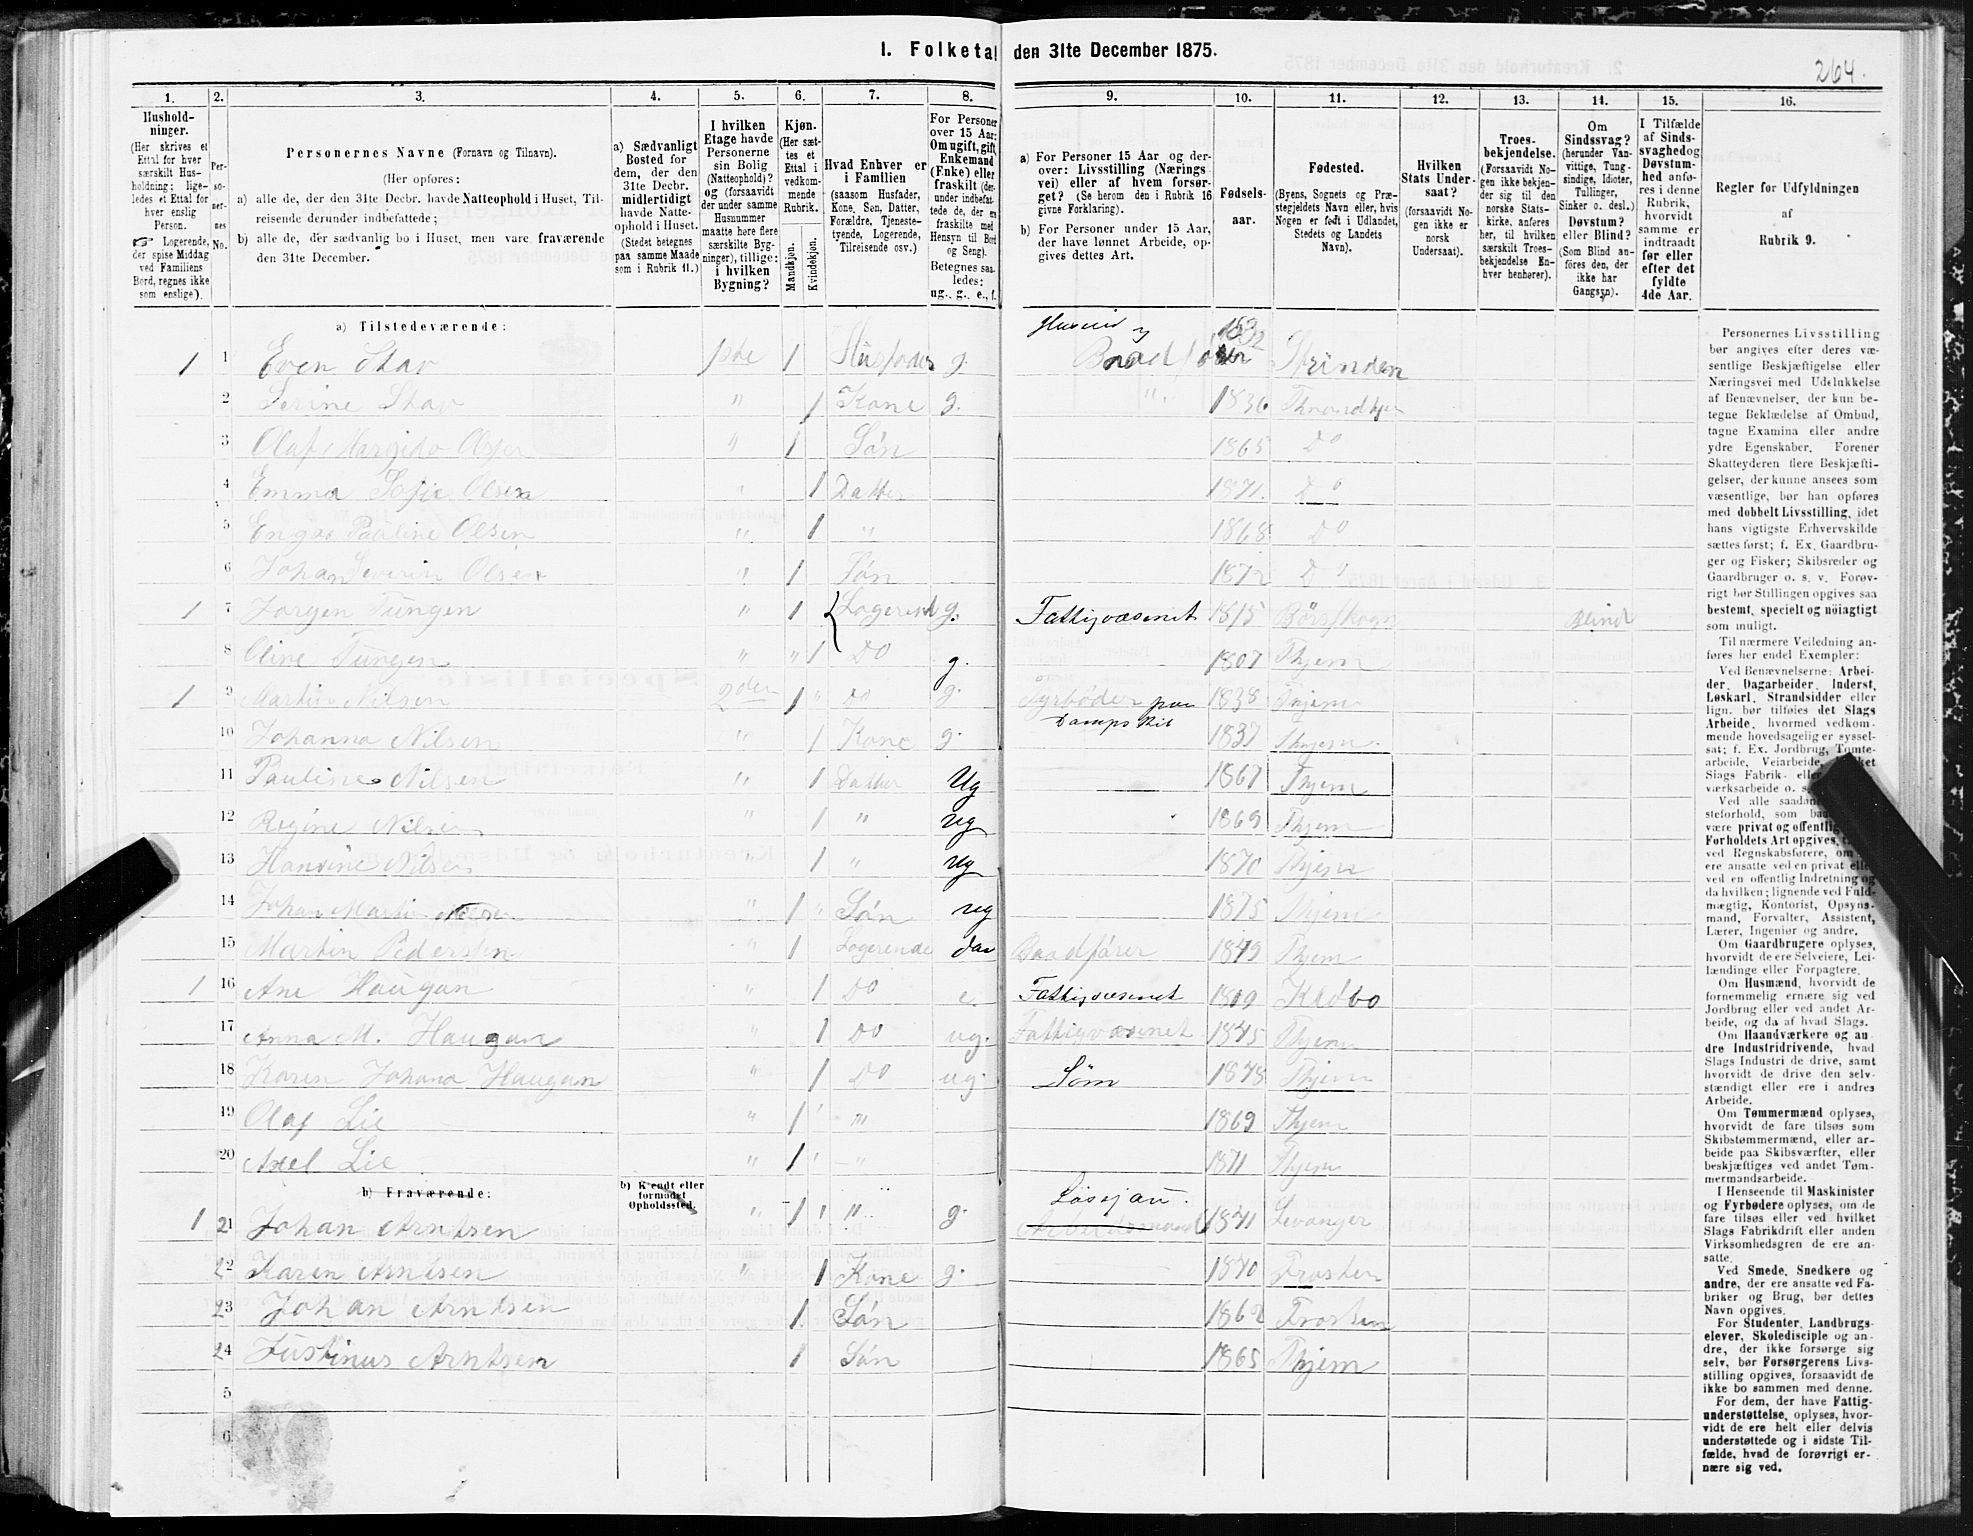 1. Folketal den 31te December 1875.
264.
1. 2. 3. 4. 5. 6. 7. 8. 9. 10. 11. 12. 13. 14. 15. 16.
Hushold-
ninger.
(Her skrives et
Ettal for hver
særskilt Hus-
holdning; lige-
ledes et Ettal for
hver enslig
Person.
☞ Logerende,
der spise Middag
ved Familiens
Bord, regnes ikke
som enslige).
Per-
so-
ner-
nes
No.
Personernes Navne (Fornavn og Tilnavn).
(Her opføres:
a) alle de, der den 31te Decbr. havde Natteophold i Huset, Til-
reisende derunder indbefattede;
b) alle de, der sædvanlig bo i Huset, men vare fraværende
den 31te December.
a) Sædvanligt
Bosted for
dem, der den
31te Decbr.
midlertidigt
havde Natte-
ophold i Huset.
(Stedet betegnes
paa samme Maade
som i Rubrik 11.)
I hvilken
Etage havde
Personerne
sin Bolig
(Natteophold)?
og (forsaavidt
der under samme
Husnummer
maatte høre flere
særskilte Byg-
ninger), tillige:
i hvilken
Bygning?
Kjøn.
(Her sæt-
tes et
Ettal i
vedkom-
mende
Rubrik.
Mandkjøn.
Kvindekjøn.
Hvad Enhver er
i Familien
(saasom Husfader,
Kone, Søn, Datter,
Forældre, Tjeneste-
tyende, Logerende,
Tilreisende osv.)
For Personer
over 15 Aar:
Om ugift, gift,
Enkemand
(Enke) eller
fraskilt (der-
under indbefat-
tede de, der er
fraskilte med
Hensyn til Bord
og Seng).
Betegnes saa-
ledes:
ug., g., e., f.
a) For Personer 15 Aar og der-
over: Livsstilling (Nærings-
vei) eller af hvem forsør-
get? (Se herom den i Rubrik 16
givne Forklaring).
b) For Personer under 15 Aar,
der have lønnet Arbeide, op-
gives dettes Art.
Fødsels-
aar.
Fødested.
(Byens, Sognets og Præ-
stegjeldets Navn eller, hvis
Nogen er født i Udlandet,
Stedets og Landets
Navn).
Hvilken
Stats Under-
saat?
(forsaavidt No-
gen ikke er
norsk
Undersaat).
Troes-
bekjendelse.
(Forsaavidt No-
gen ikke bekjen-
der sig til den
norske Stats-
kirke, anføres
her, til hvilken
særskilt Troes-
bekjendelse En-
hver henhører).
Om
Sindssvag?
(herunder Van-
vittige, Tung-
sindige, Idioter,
Tullinger,
Sinker o. desl.)
Døvstum?
eller Blind?
(Som Blind an-
føres den, der
ikke har
Gangsyn).
I Tilfælde
af Sinds-
svaghed og
Døvstum-
hed anfø-
res i denne
Rubrik,
hvorvidt
samme er
indtraadt
før eller
efter det
fyldte
4de Aar.
Regler for Udfyldningen
af
Rubrik 9.
a) Tilstedeværende:
1 1 Even Stav 1ste 1 Husfader g. Huseier og 1832 Strinden
2 Serine Stav " 1 Kone g. " 1836 Throndhjem
3 Olaf " 1 Søn 1865 Do
4 Emma Sofie Olsen " 1 Datter 1871 Do
5 Pauline Olsen " 1 " 1868 Do
6 Johan Severin Olsen " 1 Søn 1872 Do
1 7 Jørgen Tungen " 1 Logerend g. Fattigvæsenet 1815 Blind
8 Oline Tungen " " 1 Do g. 1807 Thjem
1 9 Martin Nilsen 2den 1 " Do g. Fyrbøder paa Dampskib 1838 Thjem
10 Johanna Nilsen " 1 Kone g. 1837 Thjem
11 Pauline Nilsen " 1 Datter Ug 1867 Thjem
12 Regine Nilsen " 1 " ug 1869 Thjem
13 Hansine Nilsen " 1 " ug 1870 Thjem
14 Johan Martin Nilsen " 1 " Søn ug 1875 Thjem
15 Martin Pedersen " 1 Logerende Baadfører 1849 Thjem
1 16 Ane Haugan " 1 Do e. Fattigvæsenet 1809 Klæbo
17 Anna M. Haugan " 1 Do ug. Fattigvæsenet 1845 Thjem
18 Karen Johana Haugan " 1 Do ug. Søm 1848 Thjem
19 Olaf Lie " 1 " 1869 Thjem
20 Axel Lie " 1 " 1871 Thjem
b) Fraværende:
b) Kjendt eller
formodet
Opholdssted.
1 21 Johan Arntsen " 1 " g. Løsejan. Arbeidsmand 1841 Levanger
22 Karen Arntsen " 1 Kone g. 1840 Frosten
23 Johan Arntsen 1 Søn 1862 Frosten
24 Justinus Arntsen 1 Søn 1865 Thjem
5
6
Personernes Livsstilling
bør angives efter deres væ-
sentlige Beskjæftigelse eller
Næringsvei med Udelukkelse
af Benævnelser, der kun be-
tegne Beklædelse af Ombud,
tagne Examina eller andre
ydre Egenskaber. Forener
Skatteyderen flere Beskjæfti-
gelser, der kunne ansees som
væsentlige, bør han opføres
med dobbelt Livsstilling, idet
hans vigtigste Erhvervskilde
sættes først; f. Ex. Gaardbru-
ger og Fisker; Skibsreder og
Gaardbruger o. s. v. Forøv-
rigt bør Stillingen opgives saa
bestemt, specielt og nöiagtigt
som muligt.
Til nærmere Veiledning an-
føres her endel Exempler:
Ved Benævnelserne: Arbei-
der, Dagarbeider, Inderst,
Løskarl, Strandsidder eller
lign. bør tilføies det Slags
Arbeide, hvormed vedkom-
mende hovedsagelig er syssel-
sat; f. Ex. Jordbrug, Tomte-
arbeide, Veiarbeide,
Slags Fabrik- eller
værksarbeide o. s.
Ved alle
steforhold, som
være privat og offentlig
Forholdets Art opgives,
ved Regnskabsførere, om
ere ansatte ved en privat eller
ved en offentlig Indretning og
da hvilken; lignende ved Fuld-
mægtig, Kontorist, Opsyns-
mand, Forvalter, Assistent,
Lærer, Ingeniør og andre.
Om Gaardbrugere oplyses,
hvorvidt de ere Selveiere, Lei-
lændinge eller Forpagtere.
Om Husmænd, hvorvidt de
fornemmelig ernære sig ved
Jordbrug eller ved andet Ar-
beide, og da af hvad Slags.
Om Haandværkere og an-
dre Industridrivende, hvad
Slags Industri de drive, samt
hvorvidt de drive den selv-
stændigt eller ere i andres
Arbeide.
Om Tømmermænd oplyses,
hvorvidt de fare tilsøs som
Skibstømmermænd, eller ar-
beide paa Skibsværfter, eller
beskjæftiges ved andet Tøm-
mermandsarbeide.
I Henseende til Maskinister
og Fyrbødere oplyses, om de
fare tilsøs eller ved hvilket
Slags Fabrikdrift eller anden
Virksomhedsgren de ere an-
satte.
Ved Smede, Snedkere og
andre, der ere ansatte ved Fa-
briker og Brug, bør dettes
Navn opgives.
For Studenter, Landbrugs-
elever, Skoledisciple og an-
dre, der ikke forsørge sig
selv, bør Forsørgerens Livs-
stilling opgives, forsaavidt de
ikke bo sammen med denne.
For dem, der have Fattig-
understøttelse, oplyses, hvor-
vidt de ere helt eller delvis
understøttede og i sidste Til-
fælde, hvad de forøvrigt er-
nære sig ved.